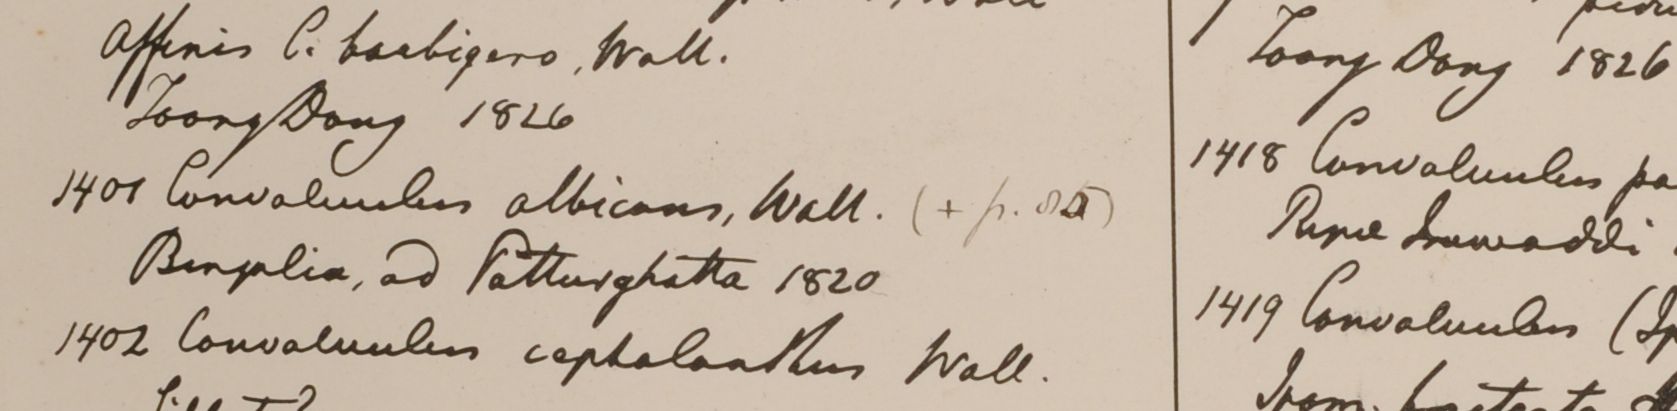 Affinis C. barbigero, Wall.
Toong Dong 1826
1401 Convolvulus albicans, Wall. (+ p.
Bengalia, ad Patturghatta 1820
1402 Convolvulus cephalanthus Wall.
Toong Dong 1826
1418 Convolvulus pa
Ripae Irawaddi
1419 Convolvulus (Ip